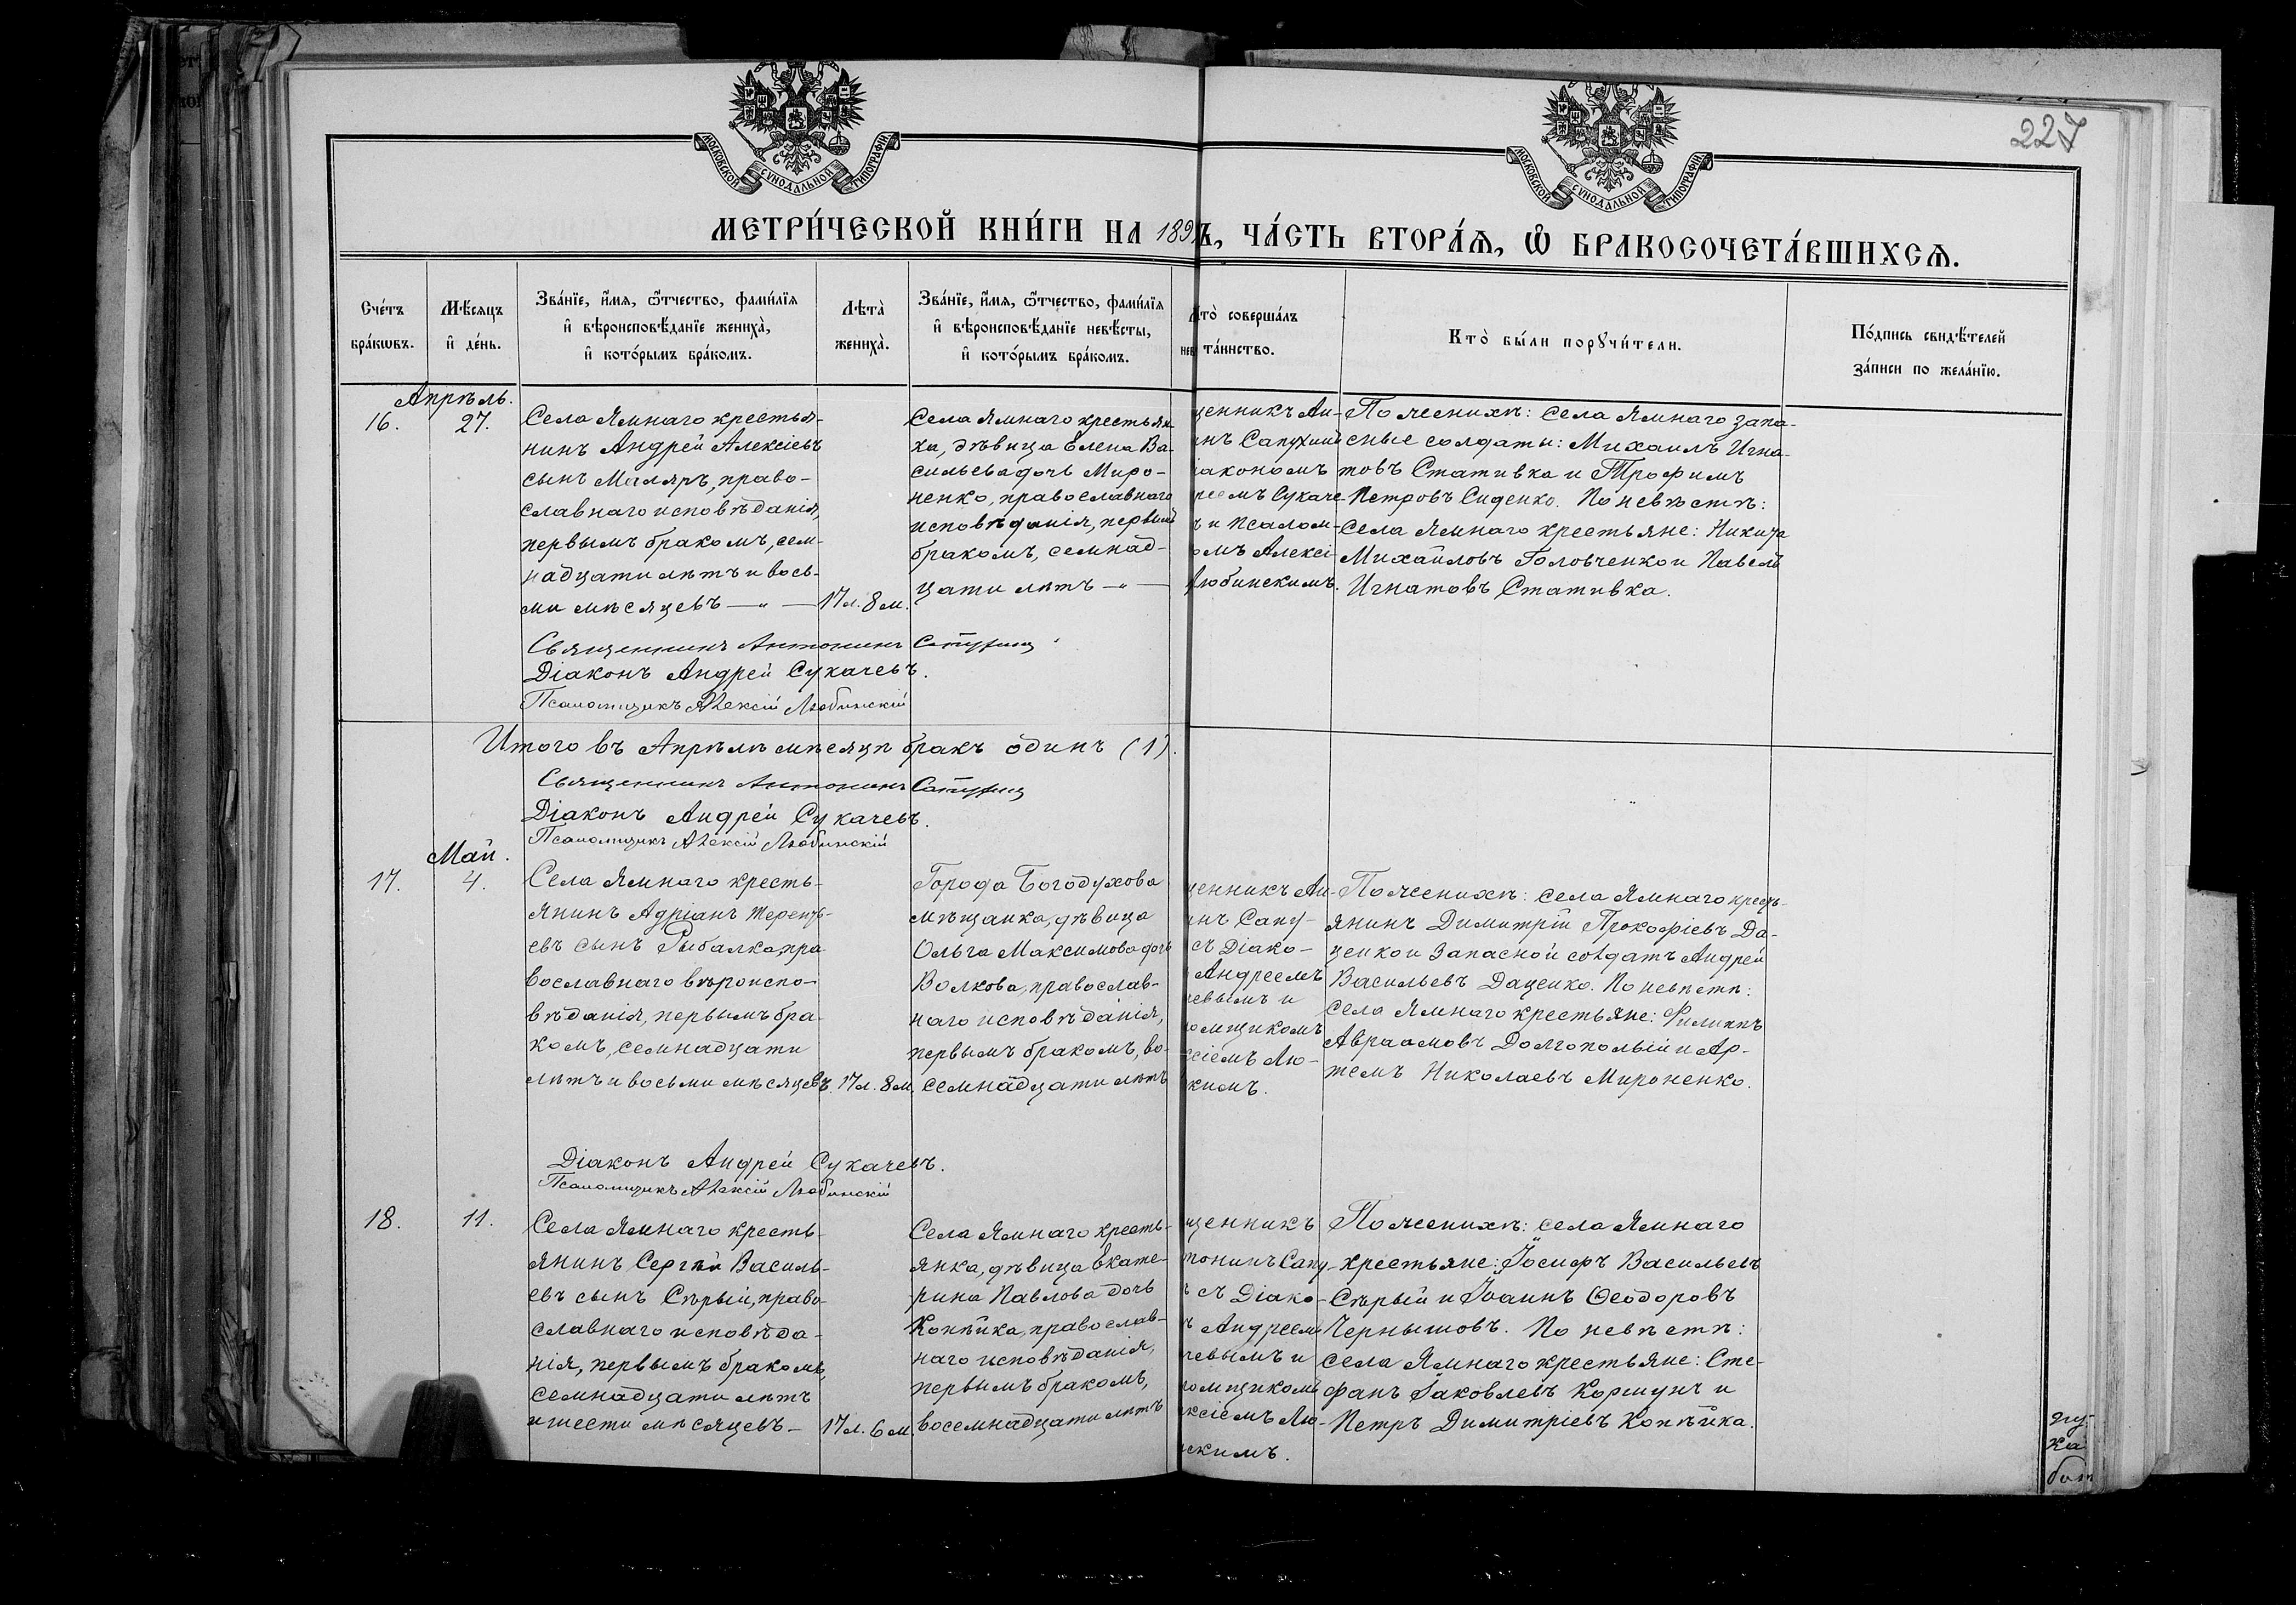 227
МОСКОВСКОЙ СѴНОДАЛЬНОЙ ТИПОГРАФІИ
МОСКОВСКОЙ СѴНОДАЛЬНОЙ ТИПОГРАФІИ
МЕТРИ́ЧЕСКОЙ КНИ́ГИ НА 189 Ъ, ЧА́СТЬ ВТОРА́Я, Ѡ҆ БРАКОСОЧЕТА́ВШИХСѦ.
Сче́тъ
бра́кѡвъ.
Мѣ́сяцъ
и҆ де́нь.
Зва́нїе, и҆́мя, ѻ҆́тчество, фами́лїя
и҆ вѣроисповѣ́данїе жениха̀,
и҆ кото́рымъ бра́комъ.
Лѣта̀
жениха̀.
Зва́нїе, и҆́мя, ѻ҆́тчество, фами́лїя
и҆ вѣроисповѣ́данїе невѣ́сты,
и҆ кото́рымъ бра́комъ.
нев
Кто̀ соверша́лъ
та́инство.
Кто̀ бы́ли порꙋчи́тели.
По́дпись свидѣ́телей
за́писи по жела́нїю.
Апрѣль.
16.
27.
Села Ямнаго крестья-
нинъ Андрей Алексіевъ
сынъ Маляръ, право-
славнаго исповѣданія,
первымъ бракомъ, сем-
надцати лѣтъ и вось-
ми мѣсяцевъ — „ —
17 л. 8 м.
Села Ямнаго крестьян-
ка, дѣвица Елена Ва-
сильева дочь Миро-
ненко, православнаго
исповѣданія, первымъ
бракомъ, семнад-
цати лѣтъ — „ —
щенникъ Ан-
инъ Сапухинъ
іакономъ
реемъ Сукаче-
ъ и псалом-
омъ Алексі-
Любинскимъ.
По женихѣ: села Ямнаго запа-
сные солдаты: Михаилъ Игна-
товъ Стативка и Трофимъ
Петровъ Сиденко. По невѣстѣ:
Села Ямнаго крестьяне: Никита
Михайловъ Головченко и Павелъ
Игнатовъ Стативка.
Священникъ Антонинъ Сапухинъ
Діаконъ Андрей Сукачевъ.
Псаломщикъ Алексій Любинскій
Итого въ Апрѣлѣ мѣсяцѣ бракъ одинъ (1).
Священникъ Антонинъ Сапухинъ
Діаконъ Андрей Сукачевъ.
Псаломщикъ Алексій Любинскій
Май.
17.
4.
Села Ямнаго кресть-
янинъ Адріанъ Теренть-
евъ сынъ Рыбалка, пра-
вославнаго вѣроиспо-
вѣданія, первымъ бра-
комъ, семнадцати
лѣтъ и восьми мѣсяцевъ.
17 л. 8 м.
Города Богодухова
мѣщанка, дѣвица
Ольга Максимова дочь
Волкова, православ-
наго исповѣданія,
первымъ бракомъ, во-
семнадцати лѣтъ
щенникъ Ан-
инъ Сапу-
съ Діако-
Андреемъ
чевымъ и
омщикомъ
ксіемъ Лю-
скимъ.
По женихѣ: села Ямнаго кресть-
янинъ Димитрій Прокофіевъ Да-
ценко и запасной солдатъ Андрей
Васильевъ Даценко. По невѣстѣ:
села Ямнаго крестьяне: Филиппъ
Авраамовъ Долгополый и Ар-
темъ Николаевъ Мироненко.
Діаконъ Андрей Сукачевъ.
Псаломщикъ Алексій Любинскій
18.
11.
Села Ямнаго кресть-
янинъ Сергѣй Василь-
евъ сынъ Сѣрый, право-
славнаго исповѣда-
нія, первымъ бракомъ,
семнадцати лѣтъ
и шести мѣсяцевъ —
17 л. 6 м.
Села Ямнаго кресть-
янка, дѣвица Екате-
рина Павлова дочь
Копѣйка, православ-
наго исповѣданія,
первымъ бракомъ,
восемнадцати лѣтъ
щенникъ
тонинъ Сапу-
ъ съ Діако-
ъ Андреемъ
чевымъ и
омщикомъ
ксіемъ Лю-
скимъ.
По женихѣ: села Ямнаго
крестьяне: Іосифъ Васильевъ
Сѣрый и Іоаннъ Ѳеодоровъ
Чернышовъ. По невѣстѣ:
села Ямнаго крестьяне: Сте-
фанъ Іаковлевъ Коршунъ и
Петръ Димитріевъ Копѣйка.